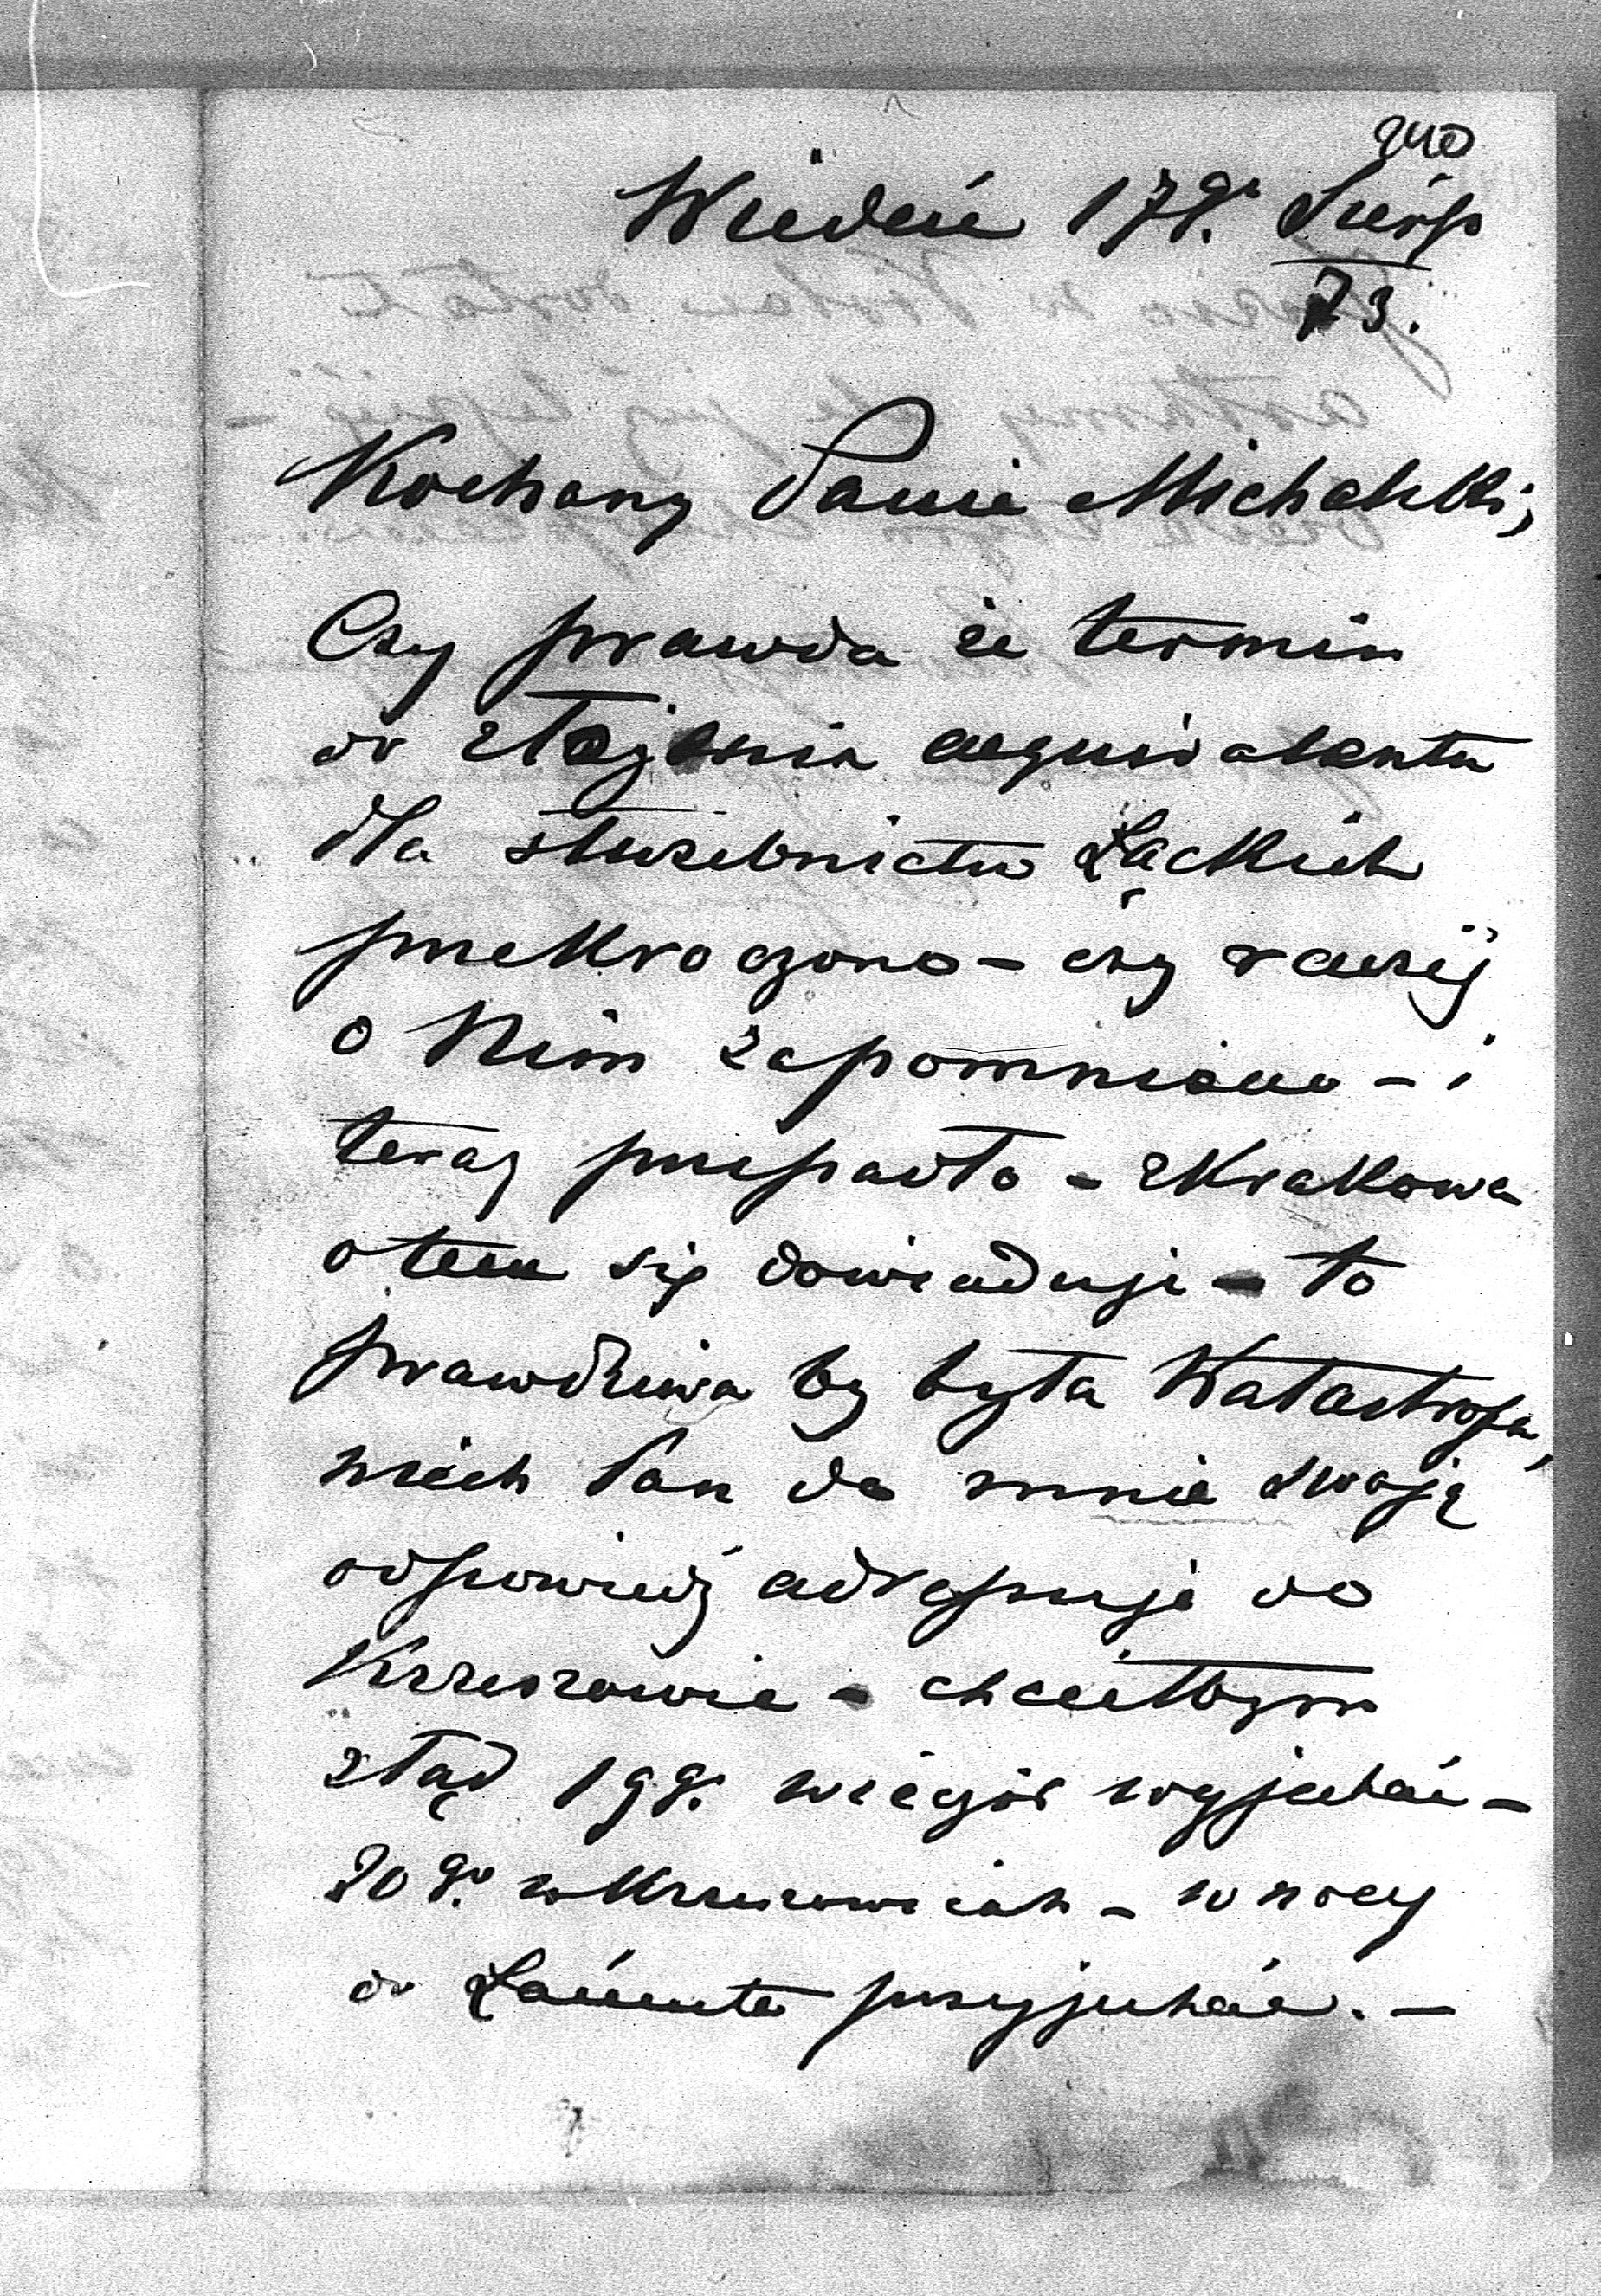 240
Wiedeń 17go Sierp
73.
Kochany Panie Michalski;
Czy prawda że termin
do złożenia aequivalentu
dla służebnictw Łąckich
przekroczono - czy raczéj
o Nim zapomniano - i
teraz przepadło - z Krakowa
o tem się dowiaduję - to
prawdziwa by była Katastrofa,
niech Pan do mnie swoję
odpowiedź adresuje do
Krzeszowic - chciałbym
ztąd 19go wieczór wyjechać -
20go w Krzeszowicach - w nocy
do Łańcuta przyjechać. -